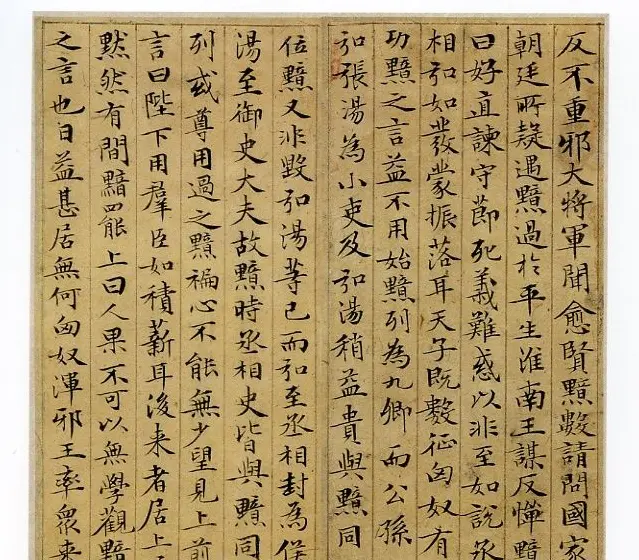 反不重邪大將軍聞愈賢黯數請問國家
朝廷所疑遇黯過於平生淮南王謀反憚黯
曰好直諫守節死義難惑以非至如說丞
相弘如發蒙振落耳天子既數征匈奴有
功黯之言益不用始黯列為九卿而公孫
弘張湯為小吏及弘湯稍益貴與黯同
位黯又非毀弘湯等已而弘至丞相封為侯
湯至御史大夫故黯時丞相史皆與黯同
列或尊用過之黯褊心不能無少望見上前
言曰陛下用羣臣如積薪耳後来者居上
默然有間黯罷上曰人果不可以無學觀黯
之言也日益甚居無何匈奴渾邪王率衆来